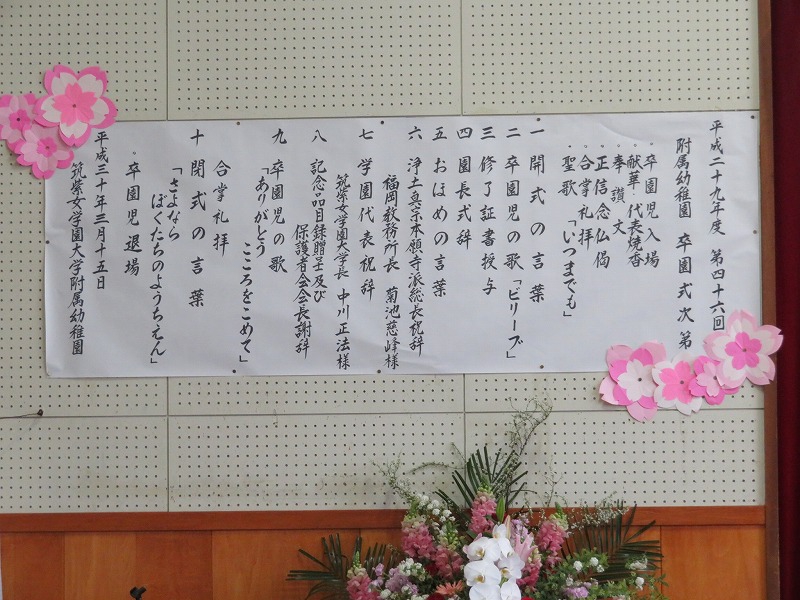 平成二十九年度 第四十六回
附属幼稚園 卒園式次第
・卒園児入場
・献華・代表焼香
・奉讃文
・正信念仏偈
・合掌礼拝
・聖歌「いつまでも」
一 開式の言葉
二 卒園児の歌「ビリーブ」
三 修了証書授与
四 園長式辞
五 おほめの言葉
六 浄土真宗本願寺派総長祝辞
福岡教務所長 菊池慈峰様
七 学園代表祝辞
筑紫女学園大学長 中川正法様
八 記念品目録贈呈及び
保護者会会長謝辞
九 卒園児の歌
「ありがとう
こころをこめて」
合掌礼拝
十 閉式の言葉
「さよなら
ぼくたちのようちえん」
・卒園児退場
平成三十年三月十五日
筑紫女学園大学附属幼稚園